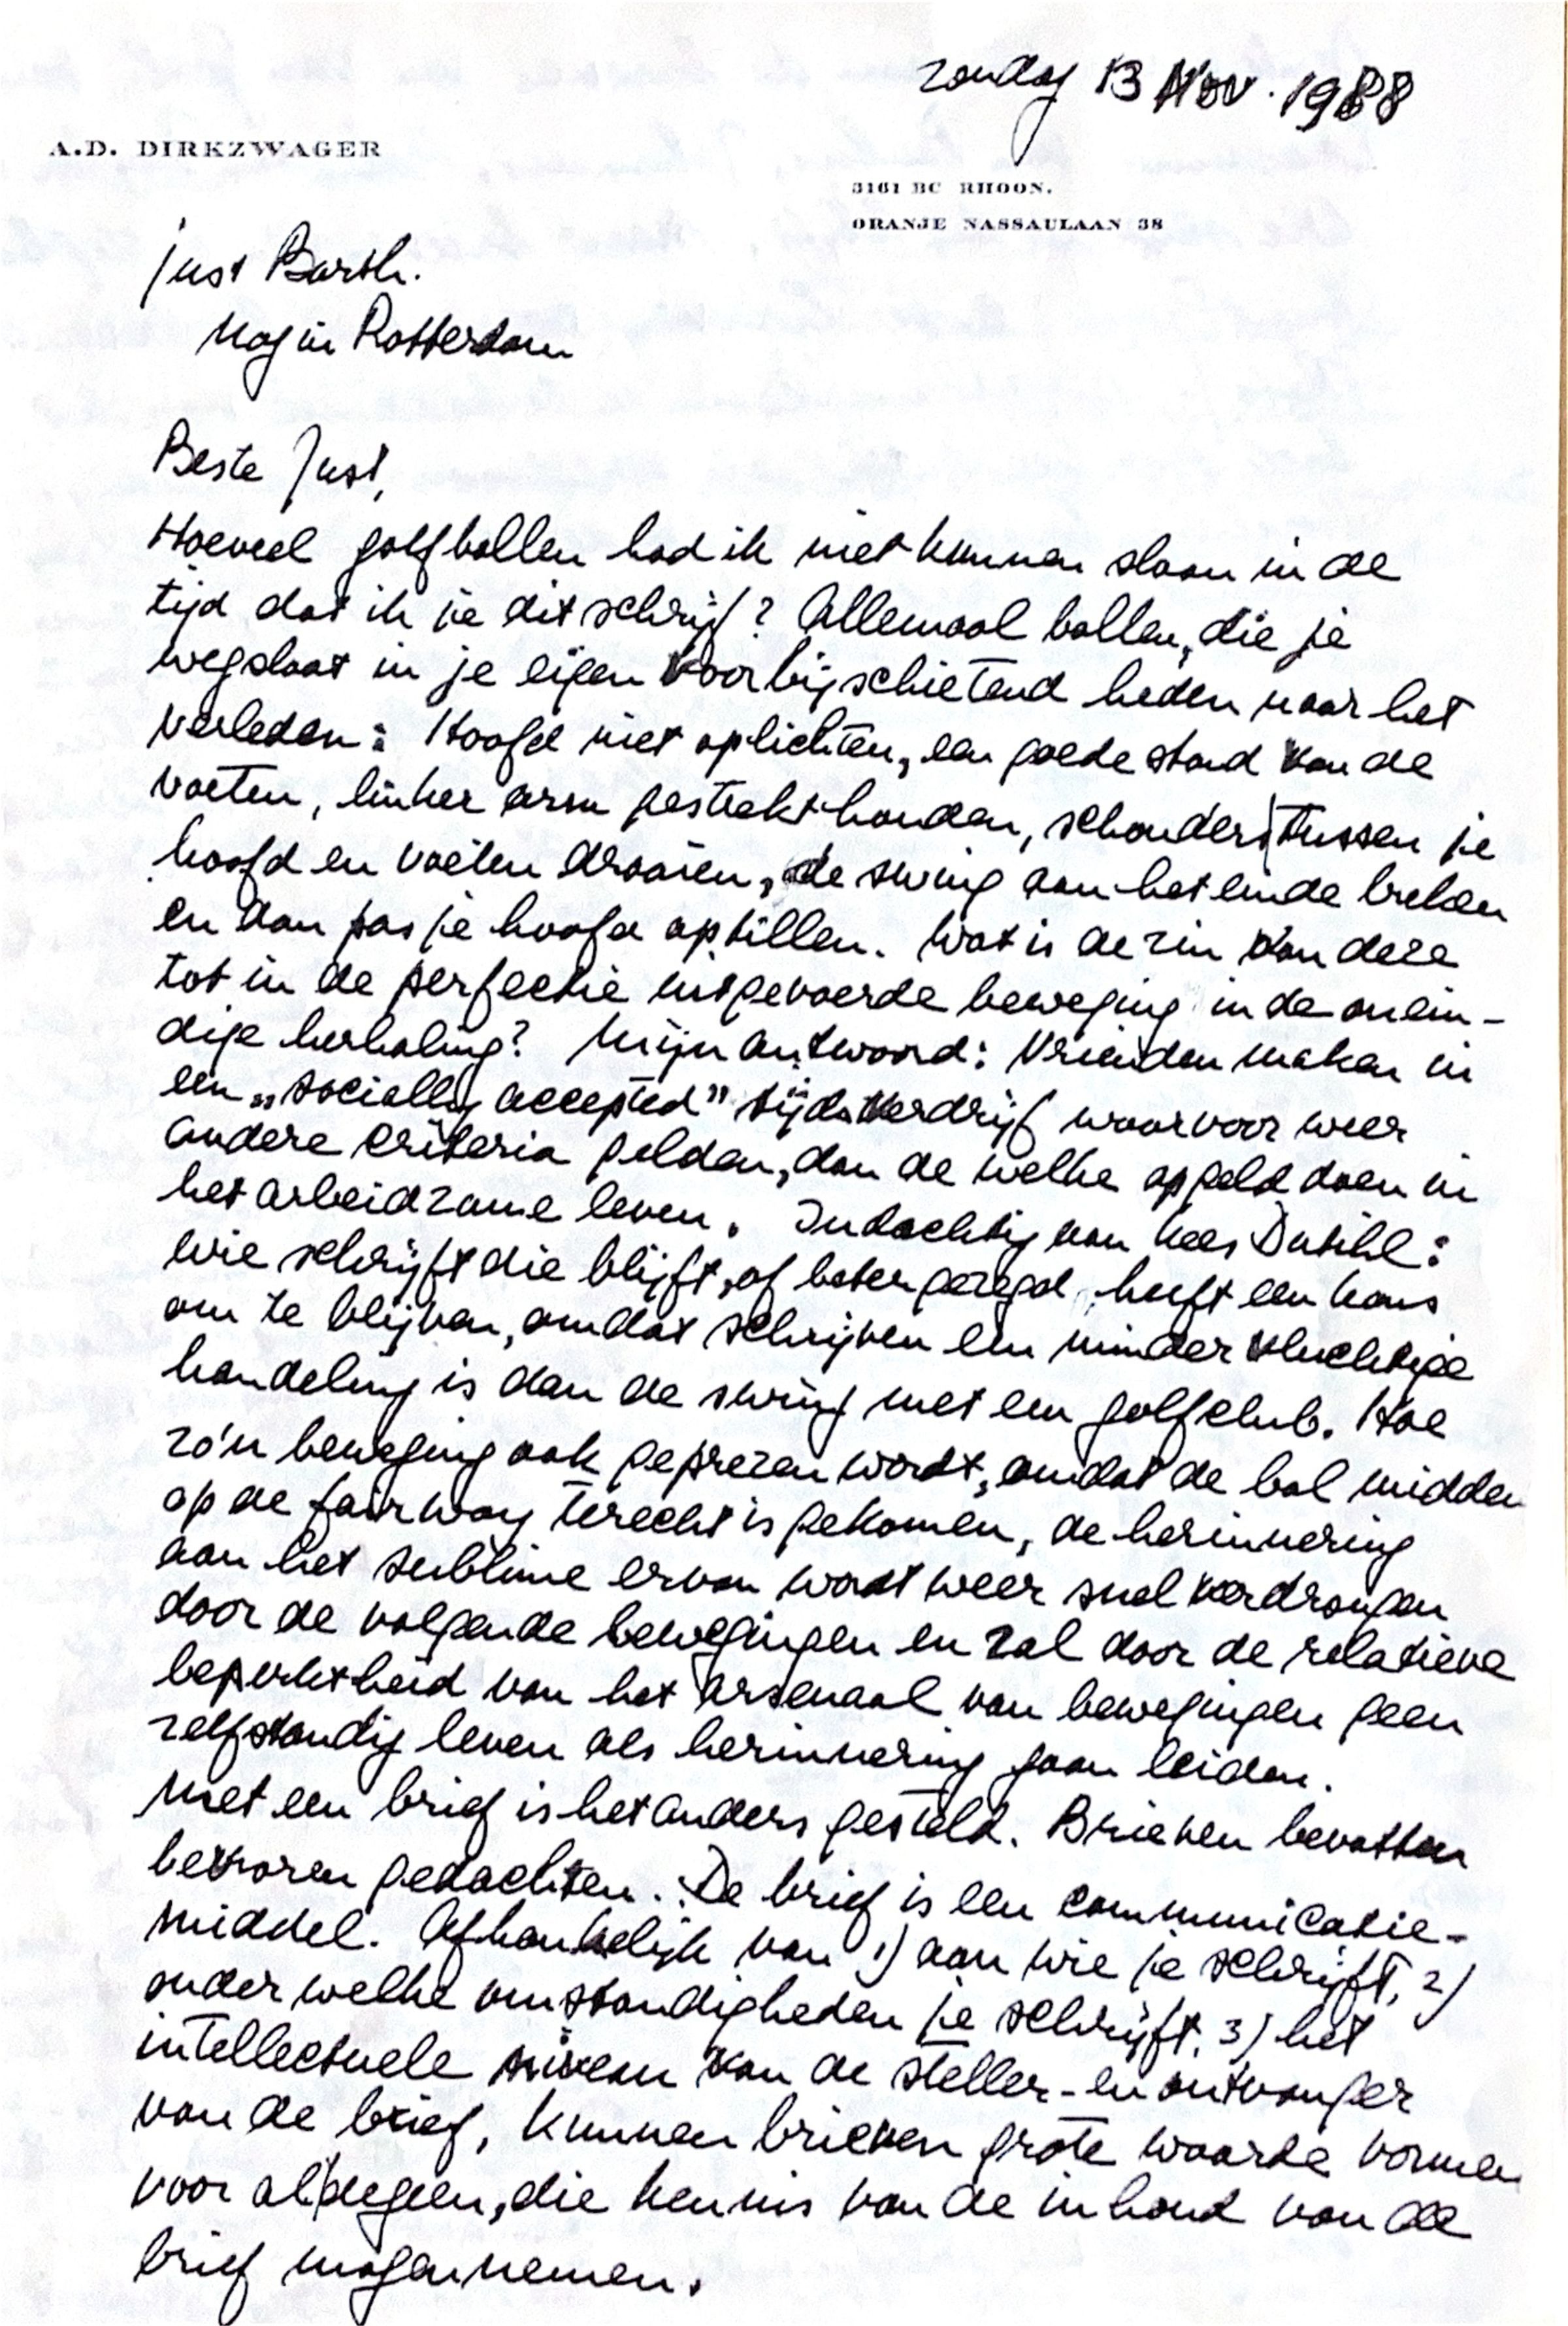 zondag 13 Nov. 1988
A.D. DIRKZWAGER
3161 BC RHOON.
ORANJE NASSAULAAN 38
Just Barth.
Nog in Rotterdam
Beste Just,
Hoeveel golfballen had ik niet kunnen slaan in de
tijd dat ik je dit schrijf? Allemaal ballen, die je
wegslaat in je eigen voorbijschietend heden naar het
verleden: Hoofd niet oplichten, een goede stand van de
voeten, linker arm gestrekt houden, schouders tussen je
hoofd en voeten draaien, de swing aan het einde breken
en dan pas je hoofd optillen. Wat is de zin van deze
tot in de perfectie uitgevoerde beweging in de onein-
dige herhaling? Mijn antwoord: Vrienden maken in
een „socially accepted" tijdsverdrijf waarvoor weer
andere criteria gelden, dan de welke opgeld doen in
het arbeidzame leven. Indachtig van Kees Dutihl:
wie schrijft die blijft, of beter gezegd, heeft een kans
om te blijven, omdat schrijven een minder vluchtige
handeling is dan de swing met een golfclub. Hoe
zo'n beweging ook geprezen wordt, omdat de bal midden
op de fairway terecht is gekomen, de herinnering
aan het sublime ervan wordt weer snel verdrongen
door de volgende bewegingen en zal door de relatieve
beperktheid van het arsenaal van bewegingen geen
zelfstandig leven als herinnering gaan leiden.
Met een brief is het anders gesteld. Brieven bevatten
bevroren gedachten. De brief is een communicatie-
middel. Afhankelijk van 1) aan wie je schrijft, 2)
onder welke omstandigheden je schrijft, 3) het
intellectuele niveau van de steller- en ontvanger
van de brief, kunnen brieven grote waarde vormen
voor al degeen, die kennis van de inhoud van de
brief mogen nemen.